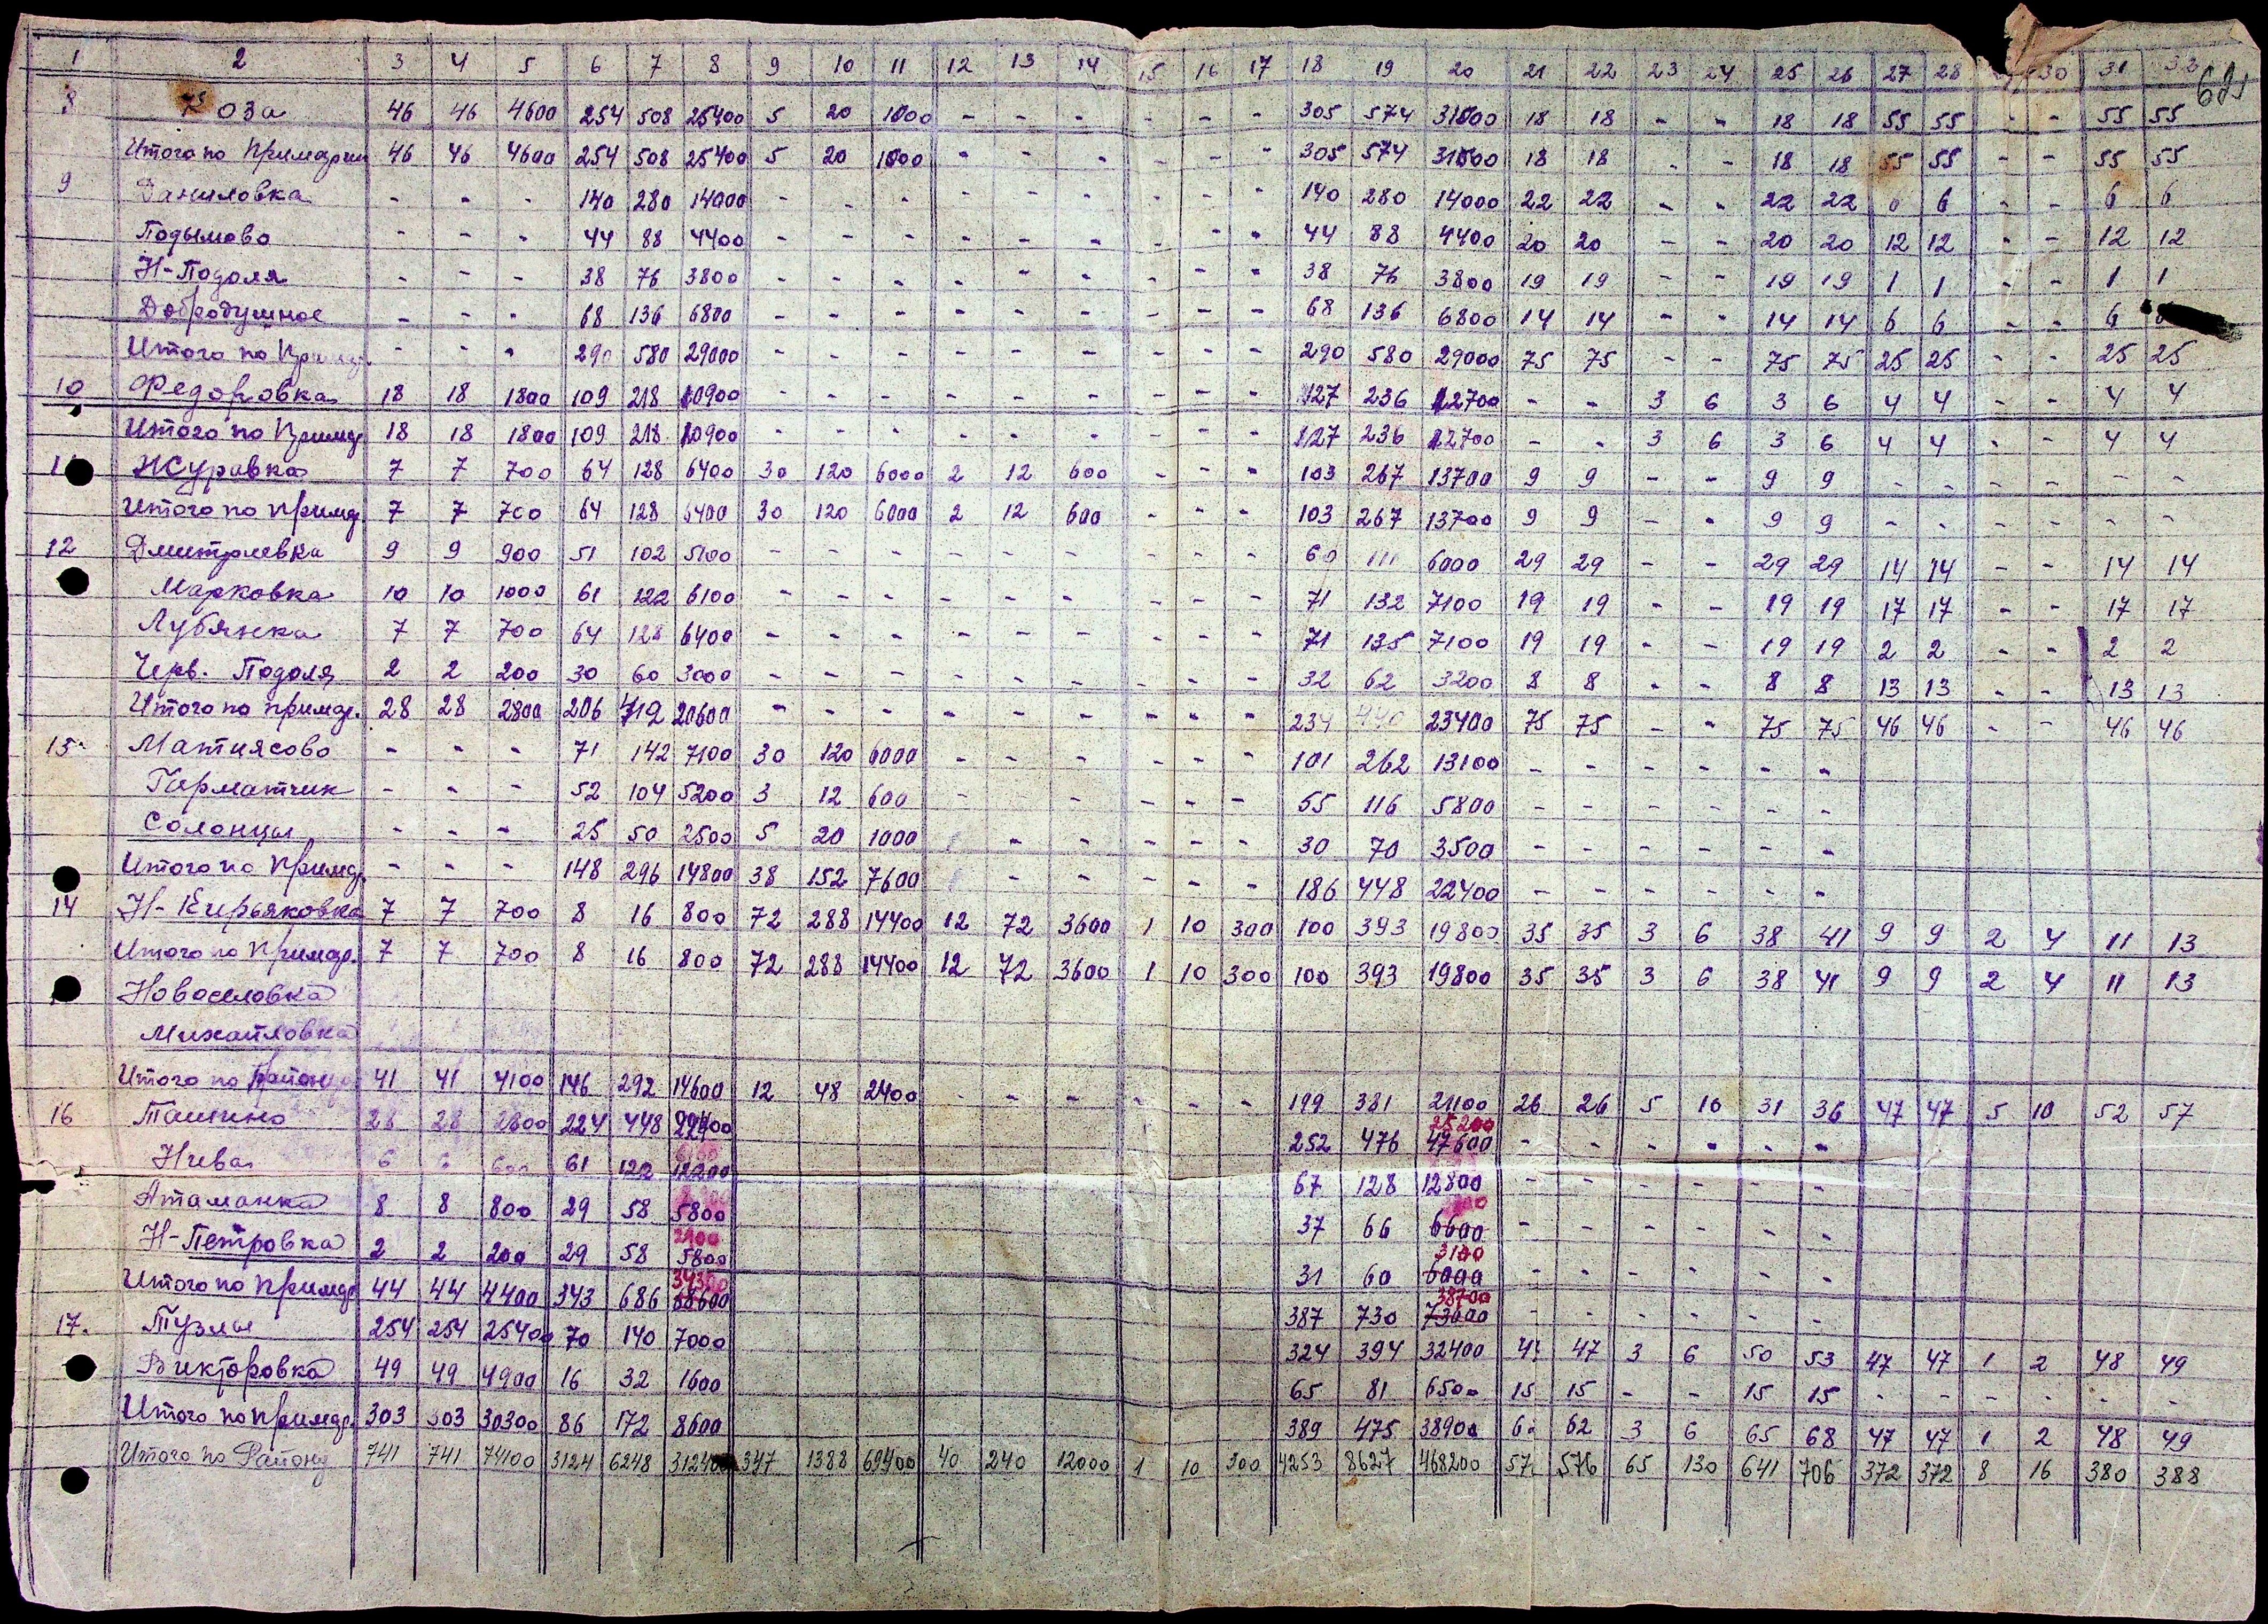 1 2 3 4 5 6 7 8 9 10 11 12 13 14 15 16 17 18 19 20 21 22 23 24 25 26 27 28 30 31 32
8 Роза 46 46 4600 254 508 25400 5 20 1000 - - - - - - 305 574 31000 18 18 - - 18 18 55 55 - - 55 55
Итого по Примарии 46 46 4600 254 508 25400 5 20 1000 - - - - - - 305 574 31000 18 18 - - 18 18 55 55 - - 55 55
9 Даниловка - - - 140 280 14000 - - - - - - - - - 140 280 14000 22 22 - - 22 22 6 6 - - 6 6
Подымово - - - 44 88 4400 - - - - - - - - - 44 88 4400 20 20 - - 20 20 12 12 - - 12 12
Н-Подоля - - - 38 76 3800 - - - - - - - - - 38 76 3800 19 19 - - 19 19 1 1 - - 1 1
Добродушное - - - 68 136 6800 - - - - - - - - - 68 136 6800 14 14 - - 14 14 6 6 - - 6
Итого по Примар. - - - 290 580 29000 - - - - - - - - - 290 580 29000 75 75 - - 75 75 25 25 - - 25 25
10 Федоровка 18 18 1800 109 218 10900 - - - - - - - - - 127 236 12700 - - 3 6 3 6 4 4 - - 4 4
Итого по Примар. 18 18 1800 109 218 10900 - - - - - - - - - 127 236 12700 - - 3 6 3 6 4 4 - - 4 4
Журавка 7 7 700 64 128 6400 30 120 6000 2 12 600 - - - 103 267 13700 9 9 - - 9 9 - - - - - -
Итого по Примар. 7 7 700 64 128 6400 30 120 6000 2 12 600 - - - 103 267 13700 9 9 - - 9 9 - - - - - -
12 Дмитриевка 9 9 900 51 102 5100 - - - - - - - - - 60 111 6000 29 29 - - 29 29 14 14 - - 14 14
Марковка 10 10 1000 61 122 6100 - - - - - - - - - 71 132 7100 19 19 - - 19 19 17 17 - - 17 17
Лубянка 7 7 700 64 128 6400 - - - - - - - - - 71 135 7100 19 19 - - 19 19 2 2 - - 2 2
Черв. Подоля 2 2 200 30 60 3000 - - - - - - - - - 32 62 3200 8 8 - - 8 8 13 13 - - 13 13
Итого по примар. 28 28 2800 206 412 20600 - - - - - - - - - 234 440 23400 75 75 - - 75 75 46 46 - - 46 46
13 Матиясово - - - 71 142 7100 30 120 6000 - - - - - - 101 262 13100 - - - - - -
Гарматчик - - - 52 104 5200 3 12 600 - - - - - - 55 116 5800 - - - - - -
Солонцы - - - 25 50 2500 5 20 1000 - - - - - 30 70 3500 - - - - - -
Итого по Примар. - - - 148 296 14800 38 152 7600 - - - - - 186 448 22400 - - - - - -
14 Н-Кирьяковка 7 7 700 8 16 800 72 288 14400 12 72 3600 1 10 300 100 393 19800 35 35 3 6 38 41 9 9 2 4 11 13
Итого по Примар. 7 7 700 8 16 800 72 288 14400 12 72 3600 1 10 300 100 393 19800 35 35 3 6 38 41 9 9 2 4 11 13
Новоселовка
Михайловка
Итого по 41 41 4100 146 292 14600 12 48 2400 - - - - - - 199 381 21100 26 26 5 10 31 36 47 47 5 10 52 57
25200
16 Ташино 28 28 2800 224 448 22400 252 476 47600 - - - - - -
6100
Нива 6 6 600 61 122 12200 67 128 12800 - - - - - -
Атаманка 8 8 800 29 58 5800 37 66 6600 - - - - - -
2900 3100
Н-Петровка 2 2 200 29 58 5800 31 60 6000 - - - - - -
34300 38700
Итого по Примар. 44 44 4400 343 686 68600 387 730 73000 - - - - - -
17. Тузлы 254 254 25400 70 140 7000 324 394 32400 47 47 3 6 50 53 47 47 1 2 48 49
Викторовка 49 49 4900 16 32 1600 65 81 6500 15 15 - - 15 15 - - - - - -
Итого по Примар. 303 303 30300 86 172 8600 389 475 38900 62 62 3 6 65 68 47 47 1 2 48 49
Итого по Району 741 741 74100 3124 6248 312400 347 1388 69400 40 240 12000 1 10 300 4253 8627 468200 576 65 130 641 706 372 372 8 16 380 388